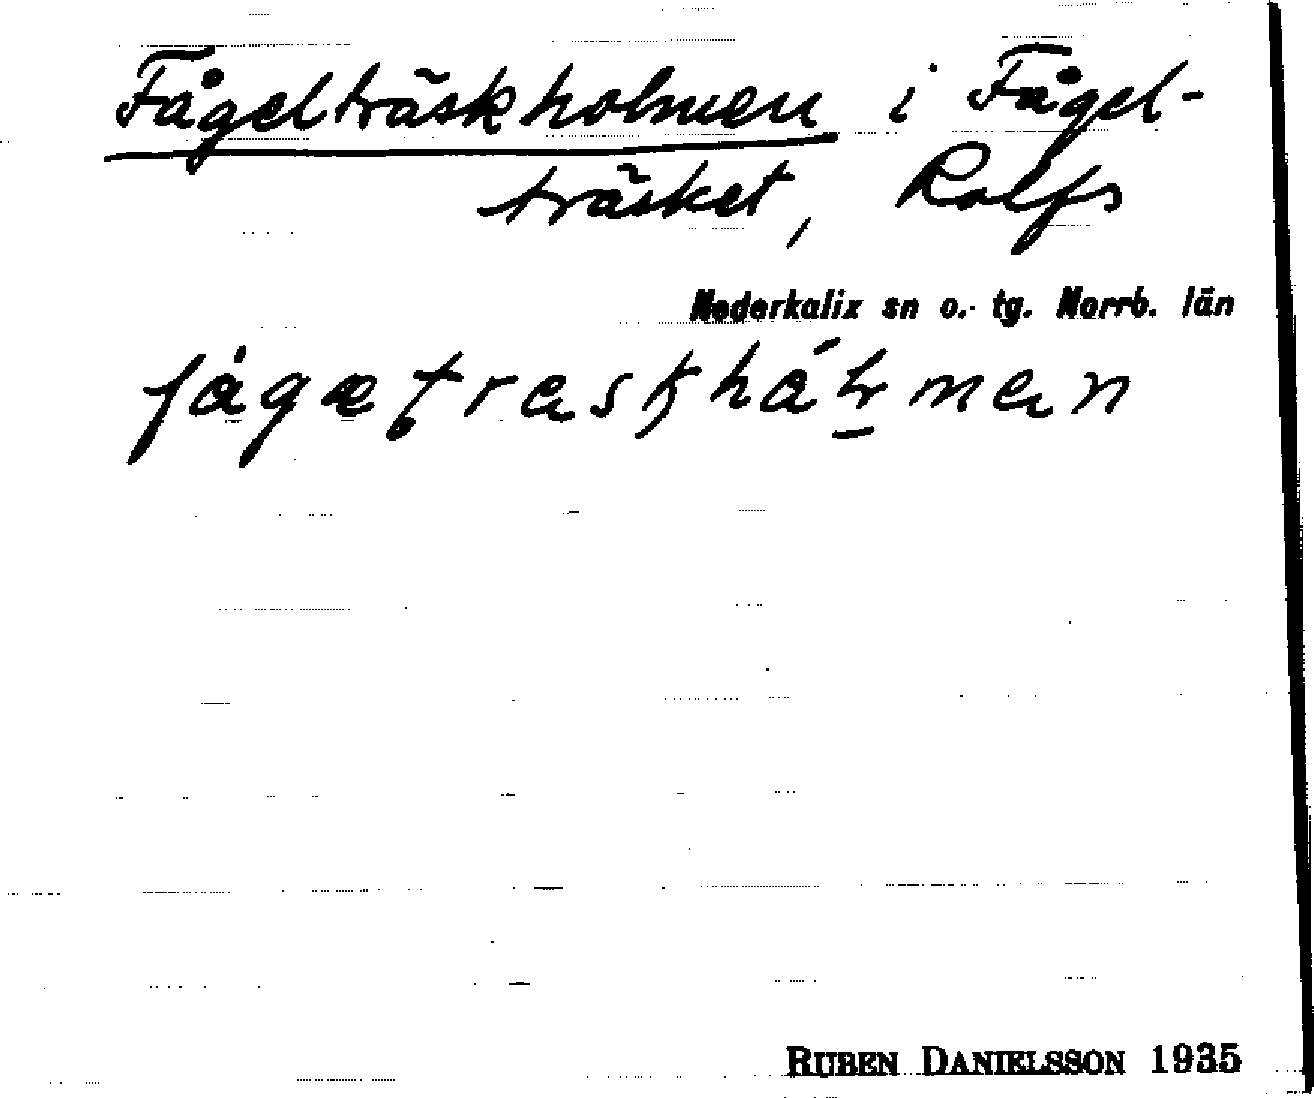 Fågelträskholmen i Fågel-
träsket, Rolfs
Nederkalix sn o. tg. Norrb. län
RUBEN DANIELSSON 1935